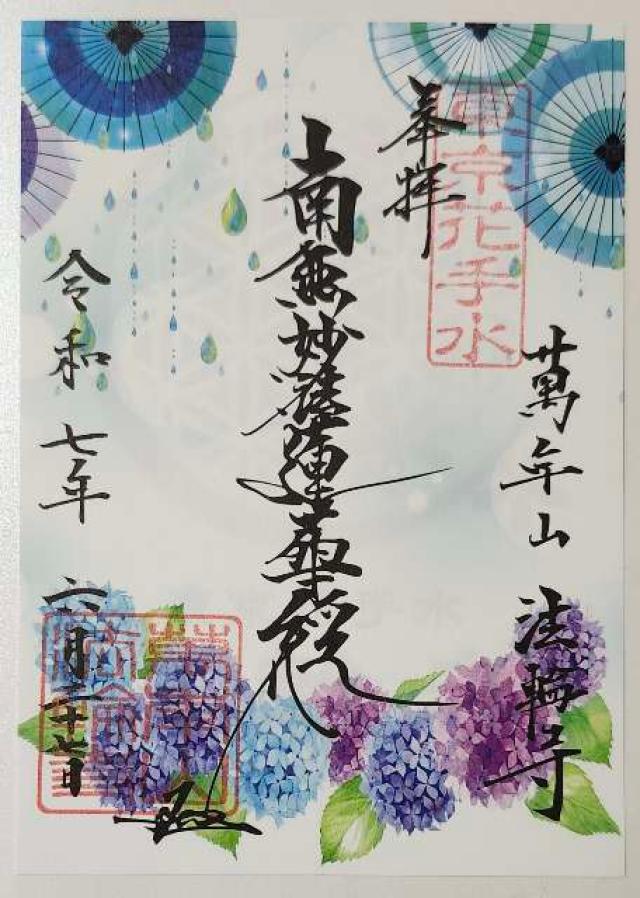 萬年山 法輪寺
東京花手水
奉拝
南無妙法蓮華経
令和七年 六月二十七日